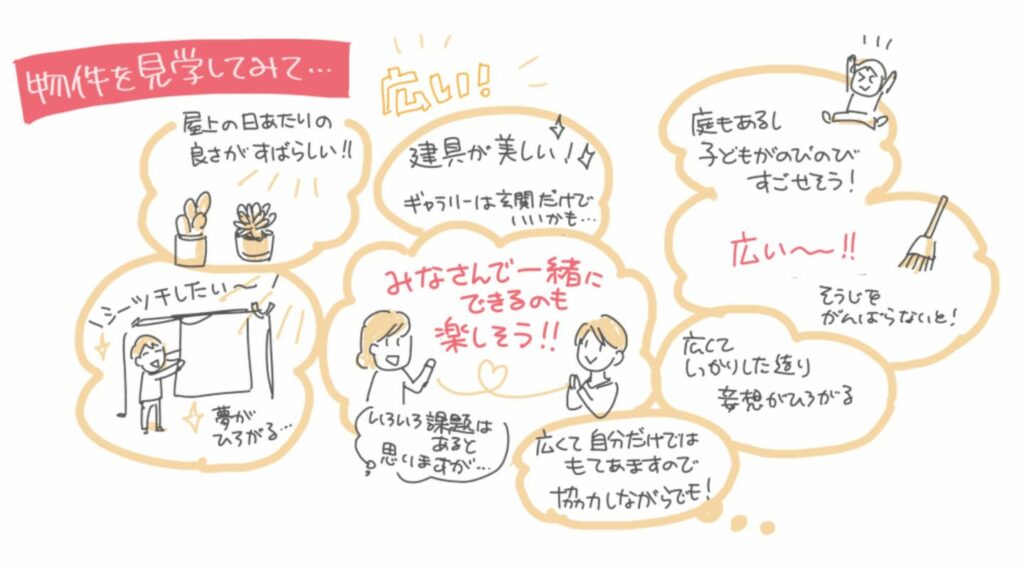 物件を見学してみて…
屋上の日あたりの
良さがすばらしい!!
広い!
建具が美しい!
ギャラリーは玄関だけで
いいかも…
庭もあるし
子どもがのびのび
すごせそう!
広い〜〜!!
そうじを
がんばらないと!
みなさんで一緒に
できるのも
楽しそう!!
いろいろ課題は
あると
思いますが…
夢が
ひろがる…
広くて
しっかりした造り
妄想がひろがる
広くて自分だけでは
もてあますので
協力しながらでも!